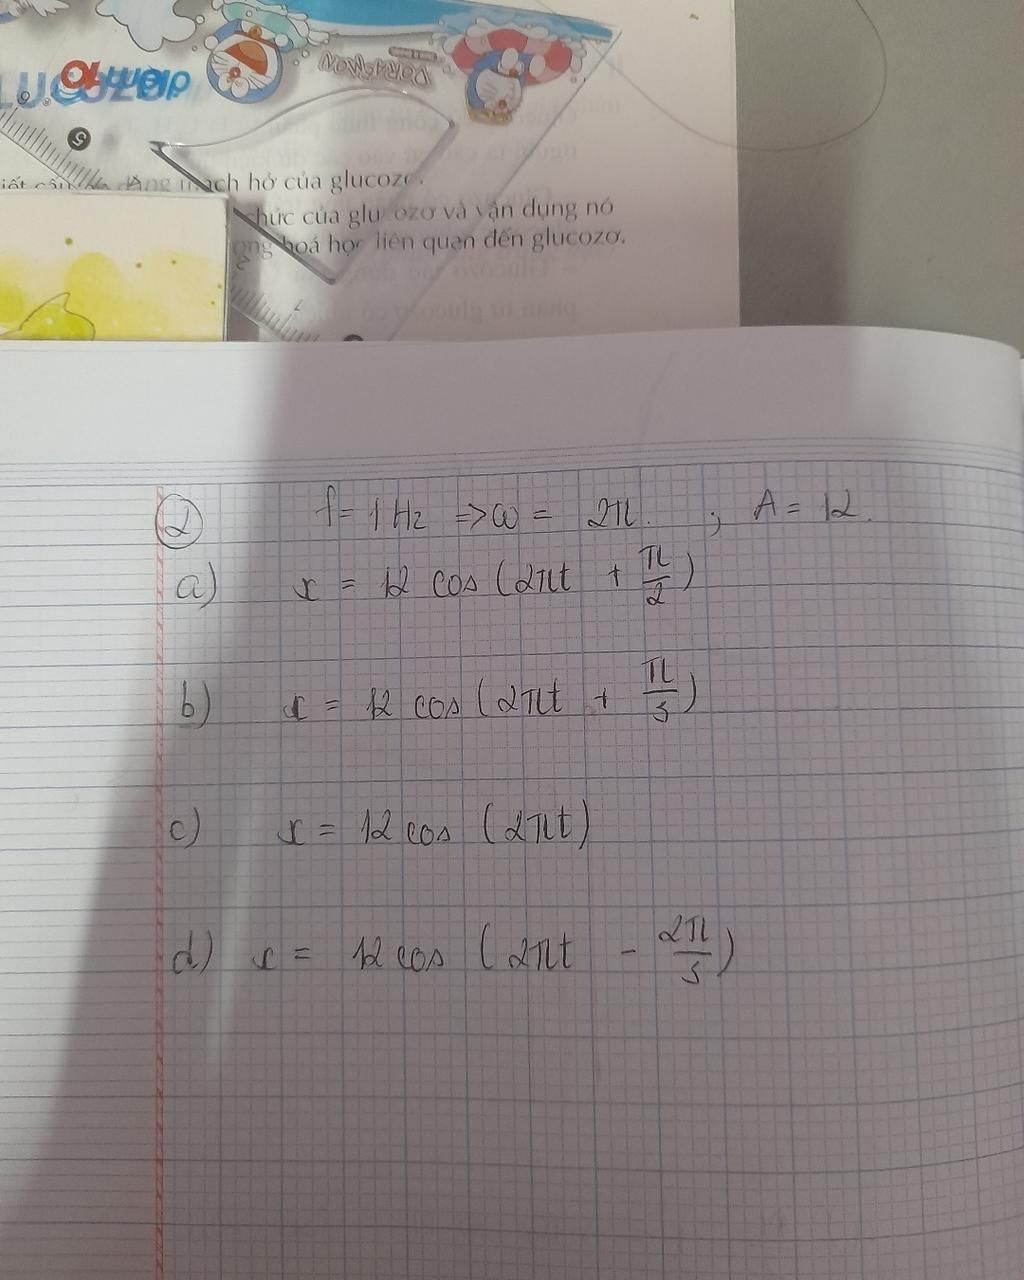 DORAEMON
điểm 10
5
mạch hở của glucozơ.
chức của glucozơ và vận dụng nó
hoá học liên quan đến glucozơ.
2
1
② f = 1 Hz => ω = 2π. ; A = 12.
a) x = 12 cos (2πt + π/2)
b) x = 12 cos (2πt + π/3)
c) x = 12 cos (2πt)
d) x = 12 cos (2πt - 2π/3)